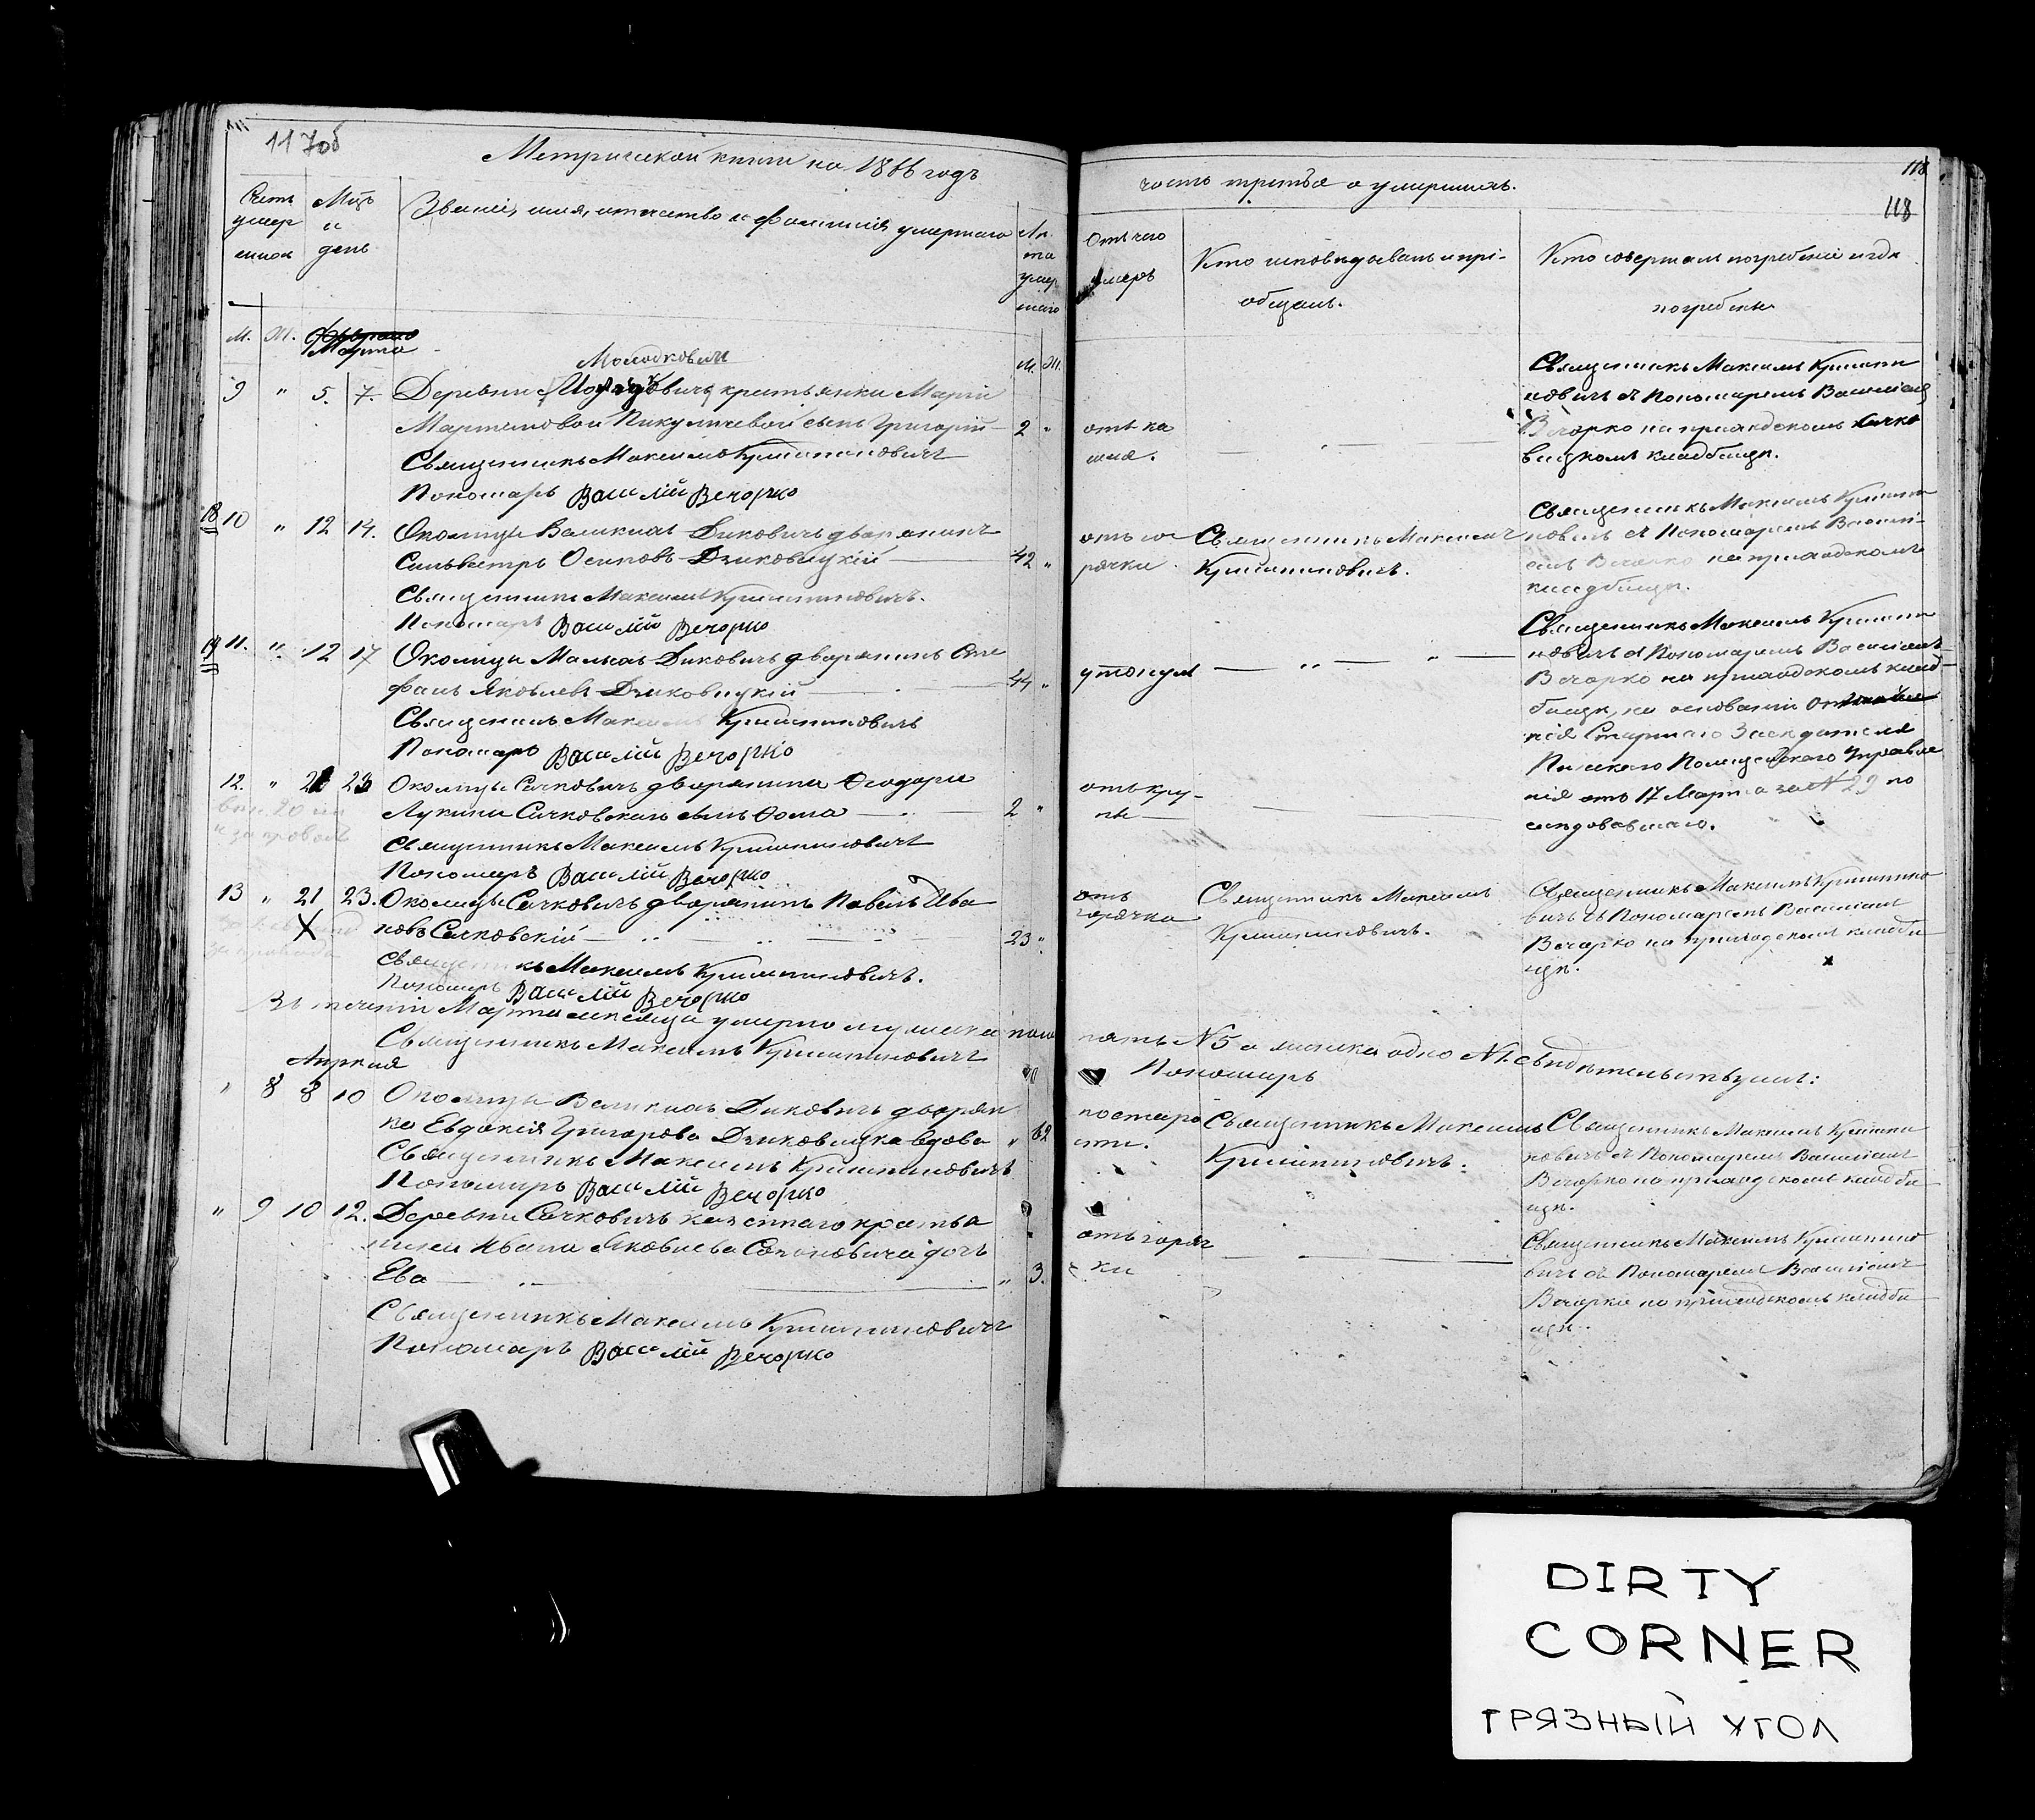 117об
Метрической книги на 1866 годъ
часть третья о умершихъ.
118
118
Счетъ умер шихъ
Мѣц. и день
Званіе, имя, отчество и фамилія умершаго
Лѣ та умер шаго
Отъ чего умеръ
Кто исповѣдывалъ и прі-
общалъ.
Кто совершалъ погребеніе и гдѣ
погребены
М. Ж. Марта
М. Ж.
Молодковичи
9 " 5. 7. Деревни крестьянки Маріи
Мартиновой Пикуличевой сынъ Григорій 2 "
Священникъ Максимъ
Пономарь Василій Вечорко
отъ ка
шля.
Священникъ Максимъ
новичъ съ Пономаремъ Василіемъ
Вечорко на приходскомъ Сачко
вицкомъ кладбищѣ.
18 10 " 12 14. Околицы Великихъ Диковичъ дворянинъ
Сильвестръ Осиповъ Дзиковицкій 42 "
Священникъ Максимъ
Пономарь Василій Вечорко
отъ го
рячки
Священникъ Максимъ
Священникъ Максимъ
новичъ съ Пономаремъ Васілі-
емъ Вечорко на приходскомъ
кладбищѣ.
19 11. " 12 17 Околицы Малыхъ Диковичъ дворянинъ Сте
фанъ Яковлевъ Дзиковицкій 44 "
Священникъ Максимъ
Пономарь Василій Вечорко
утонулъ
Священникъ Максимъ
новичъ съ Пономаремъ Василіемъ
Вечорко на приходскомъ клад
бищѣ, на основаніи
нія Старшаго Засѣдателя
Пинскаго Полицейскаго Управле
нія отъ 17 Марта за N 29 по
слѣдовавшаго.
12. " 23 Околицы Сачковичъ дворянина Ѳеодора
Лукина Сачковскаго сынъ Ѳома 2 "
Священникъ Максимъ
Пономарь Василій Вечорко
отъ кру-
пы
13 " 21 23. Околицы Сачковичъ дворянинъ Павелъ Ива
новъ Сачковскій 23 "
Священникъ Максимъ
Пономарь Василій Вечорко
отъ
горячки
Священникъ Максимъ
Священникъ Максимъ
вичъ съ Пономаремъ Василіемъ
Вечорко на приходскомъ кладби
щѣ.
Въ теченіи Марта мѣсяца умерло мужеска пола
пять N 5 а женска одно N 1. свидѣтельствуемъ:
Священникъ Максимъ
Пономарь
Апрѣля
" 8 8 10 Околицы Великихъ Диковичъ дворян
ка Евдокія Григорова Дзиковицка вдова " 62
Священникъ Максимъ
Пономарь Василій Вечорко
по старо
сти.
Священникъ Максимъ
Священникъ Максимъ
новичъ съ Пономаремъ Василіемъ
Вечорко на приходскомъ кладби
щѣ.
" 9 10 12. Деревни Сачковичъ казеннаго крестья
нина Ивана Яковлева дочь
Ева " 3.
Священникъ Максимъ
Пономарь Василій Вечорко
отъ горяч
ки
Священникъ Максимъ
вичъ съ Пономаремъ Василіемъ
Вечорко на приходскомъ кладби
щѣ.
DIRTY
CORNER
ГРЯЗНЫЙ УГОЛ